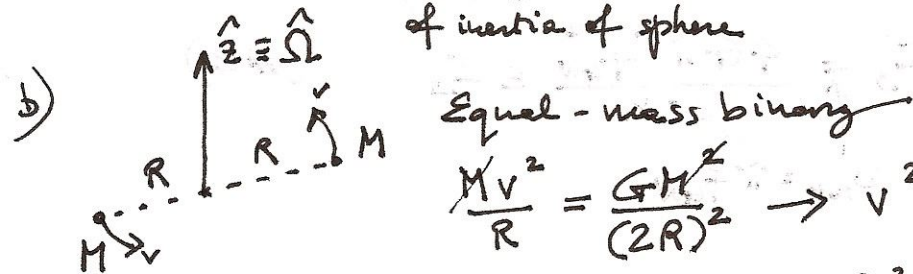 of inertia of sphere
b)
ẑ ≡ Ω̂
Equal-mass binary
R R v M
M v
Mv²/R = GM²/(2R)² → v²